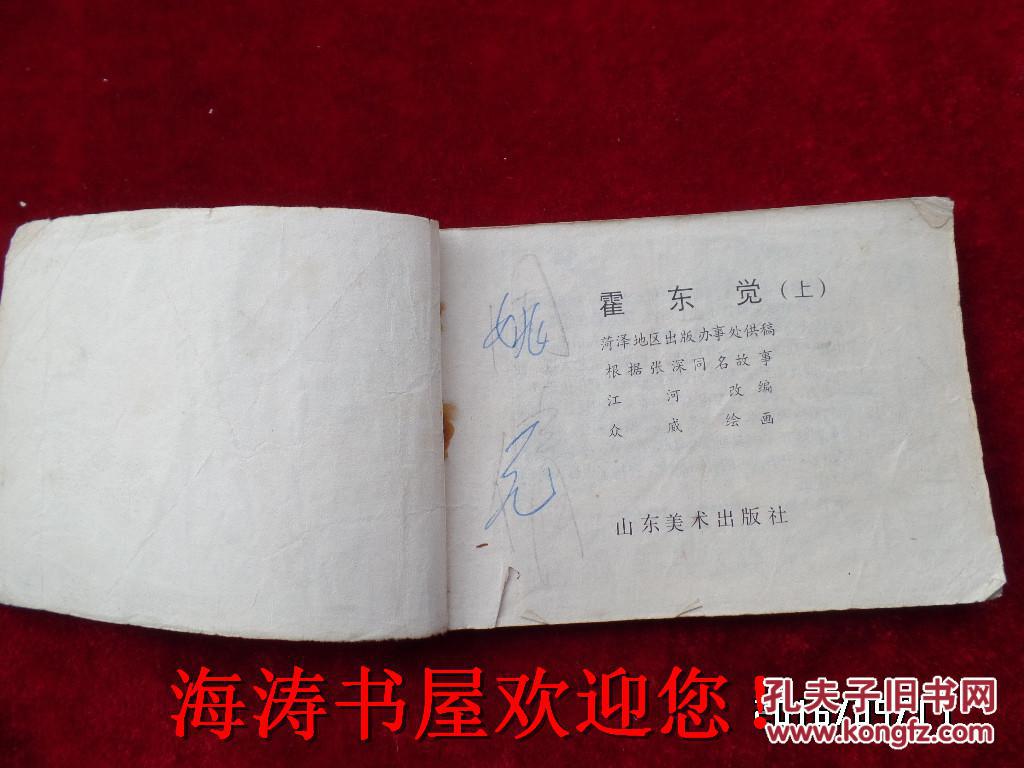 霍东觉(上)
菏泽地区出版办事处供稿
根据张深同名故事
江河改编
众威绘画
山东美术出版社
海涛书屋欢迎您!
孔夫子旧书网
www.kongfz.com